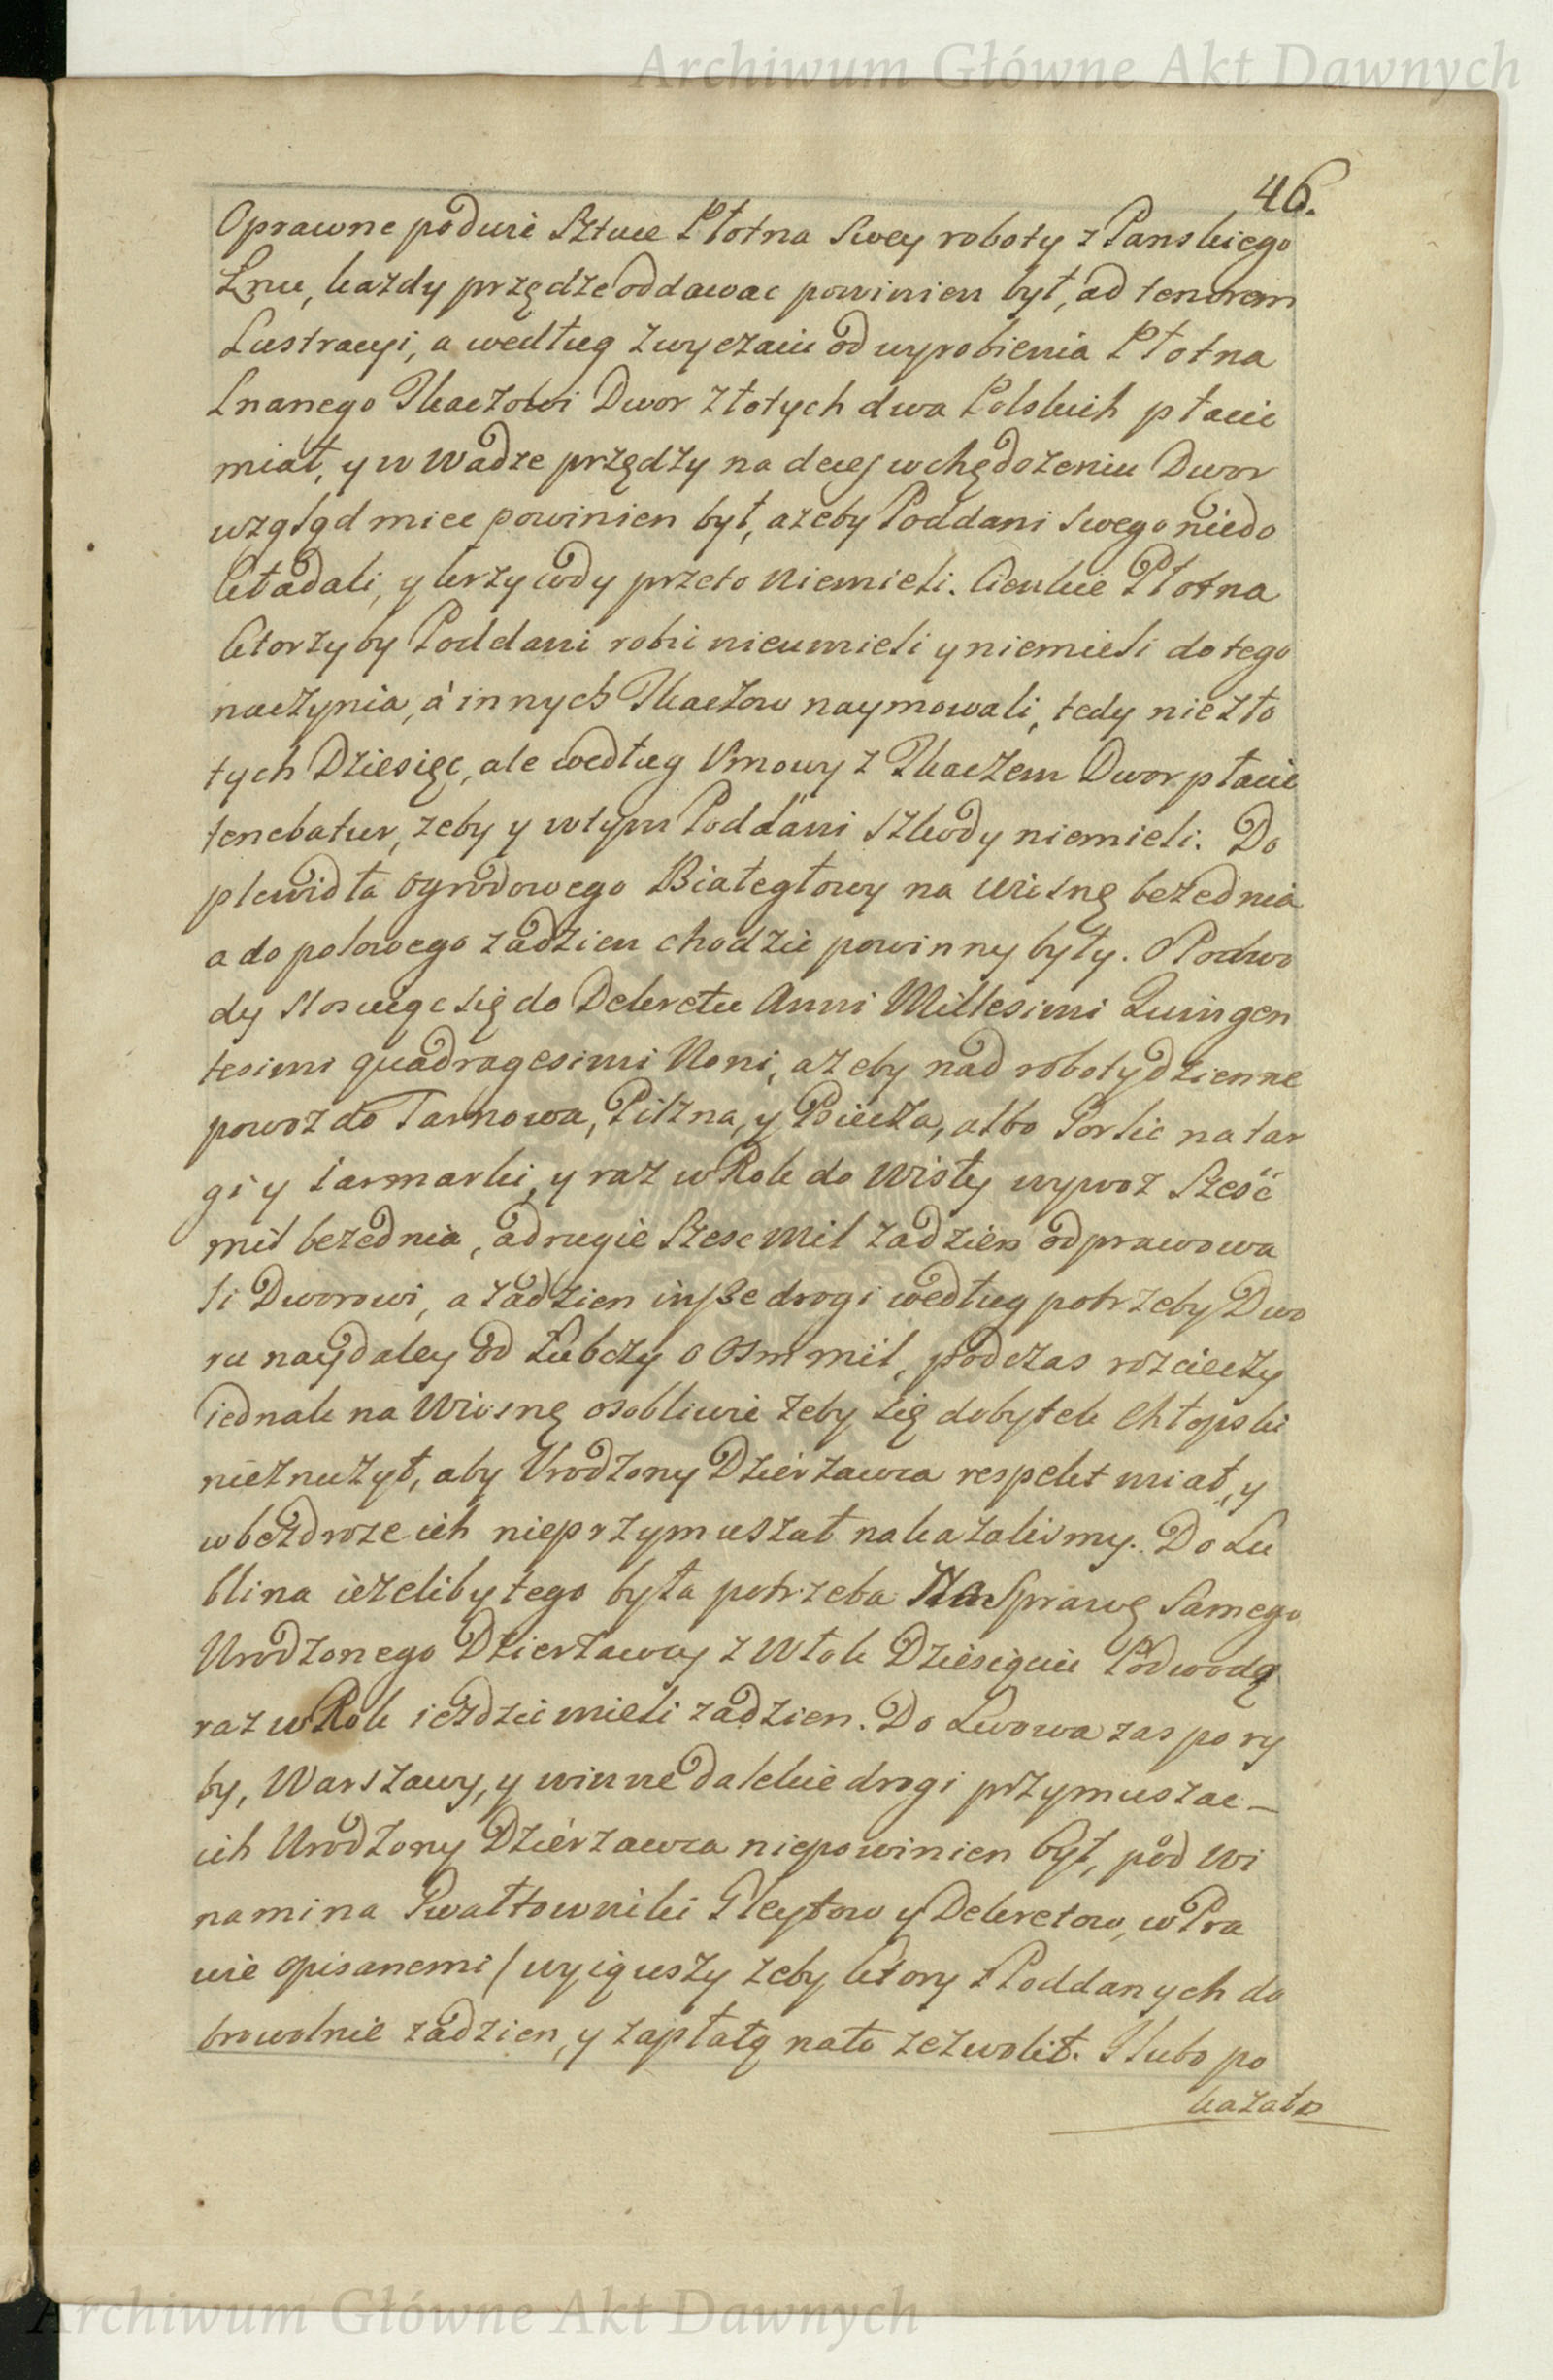 Archiwum Główne Akt Dawnych
46.
Oprawne podwie Sztuce Płotna Swey roboty z Panskiego
Lnu, kazdy przędze oddawac powinien był, ad tenorem
Lustracyi, a według zwyczaiu od wyrobienia Płotna
Lnanego Tkaczowi Dwor złotych dwa Polskich płacic
miał, y w Wadze przędzy na decej wchędozeniu Dwor
wzgląd miec powinien był, azeby Poddani swego niedo
kładali, y krzywdy przeto niemieli. Cienkie Płotna
ktorzyby Poddani robic nieumieli y niemieli do tego
naczynia, á innych Tkaczow naymowali, tedy nie zło
tych Dziesięc, ale według Vmowy z Tkaczem Dwor płacic
tenebatur, zeby y wtym Poddani szkody niemieli. Do
plewidła ogrodowego Białegłowy na wiosnę bezednia
a do polowego zadzien chodzic powinny były. O Podwo
dy stosuiąc się do Dekretu Anni Millesimi Quingen
tesimi quadragesimi Noni, azeby nad roboty dzienne
powoz do Tarnowa, Pilzna, y Biecza, albo Gorlic na tar
gi y iarmarki, y raz w Rok do Wisły wywoz Sześć
mil bezednia, a drugie Szesc mil zadzien odprawowa
li Dworowi, a zadzien insze drogi według potrzeby Dwo
ru naydaley od Lubczy o osm mil, podczas rozcieczy
iednak na Wiosnę osobliwie zeby się dobytek Chłopski
nieznuzył, aby Vrodzony Dzierzawca respekt miał, y
w bezdroze ich nieprzymuszał nakazalismy. Do Lu
blina iezeliby tego była potrzeba Na Sprawę Samego
Urodzonego Dzierzawcy z Włok Dziesięciu Podwodą
raz w Rok iezdzic mieli zadzien. Do Lwowa zas po ry
by, Warszawy, y w inne dalekie drogi przymuszac
ich Urodzony Dzierzawca niepowinien był, pod wi
nami na Gwałtowniki Gleytow y Dekretow, w Pra
wie opisanemi / wyiąwszy zeby ktory z Poddanych do
browolnie zadzien, y zapłatą nato zezwolił. I lubo po
kazało
Archiwum Główne Akt Dawnych